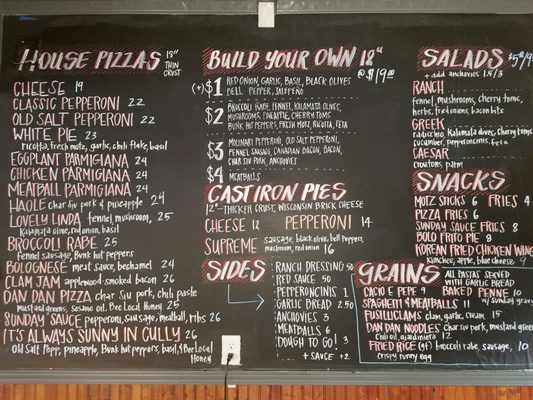 HOUSE PIZZAS 18" THIN CRUST
CHEESE 19
CLASSIC PEPPERONI 22
OLD SALT PEPPERONI 22
WHITE PIE 23
ricotta, fresh motz, garlic, chili flake, basil
EGGPLANT PARMIGIANA 24
CHICKEN PARMIGIANA 24
MEATBALL PARMIGIANA 24
HAOLE char siu pork & pineapple 24
LOVELY LINDA fennel, mushroom, 25
Kalamata olive, red onion, basil
BROCCOLI RABE 25
fennel sausage, Bunk hot peppers
BOLOGNESE meat sauce, bechamel 24
CLAM JAM applewood smoked bacon 26
DAN DAN PIZZA char siu pork, chili paste
Mustard greens, Sesame oil, Bee Local Honey 25
SUNDAY SAUCE pepperoni, sausage, meatball, ribs 26
IT'S ALWAYS SUNNY IN CULLY 26
Old Salt Pepp, pineapple, Bunk hot peppers, basil, & Bee Local Honey
BUILD YOUR OWN 18"
@ $19.00
(+) $1 RED ONION, GARLIC, BASIL, BLACK OLIVES
BELL PEPPER, JALEPEÑO
$2 BROCCOLI RABE, FENNEL, KALAMATA OLIVES,
MUSHROOMS, PINEAPPLE, CHERRY TOMS
BUNK HOT PEPPERS, FRESH MOTZ, RICOTTA, FETA
$3 MOLINARI PEPPERONI, OLD SALT PEPPERONI,
FENNEL SAUSAGE, CANADIAN BACON, BACON,
CHAR SIU PORK, ANCHOVIES
$4 MEATBALLS
CAST IRON PIES
12"-THICKER CRUST, WISCONSIN BRICK CHEESE
CHEESE 12 PEPPERONI 14
SUPREME sausage, black olive, bell peppers,
mushroom, red onion 16
SIDES
RANCH DRESSING .50
RED SAUCE .50
PEPPERONCINIS 1
GARLIC BREAD 2.50
ANCHOVIES 3
MEATBALLS 6
DOUGH TO GO! 3
+ SAUCE +2
SALADS
+ add anchovies 1.5/3
RANCH
fennel, mushrooms, cherry toms,
herbs, fried onions, bacon bits
GREEK
radicchio, Kalamata olives, cherry toms,
cucumbers, pepperoncinis, feta
CAESAR
croutons, parm
SNACKS
MOTZ STICKS 6 FRIES 4
PIZZA FRIES 6
SUNDAY SAUCE FRIES 8
BOLO FRITO PIE 8
KOREAN FRIED CHICKEN WINGS
Kimchee, apple, blue cheese 9
GRAINS ALL PASTAS SERVED
WITH GARLIC BREAD
CACIO E PEPE 9 BAKED PENNE 10
w/ Sunday gravy
SPAGHETTI & MEATBALLS 11
FUSILLI CLAMS clam, garlic, cream 15
DAN DAN NOODLES char siu pork, mustard greens
Chili oil, giardiniera 12
FRIED RICE (gf) broccoli rabe, sausage, 10
crispy runny egg